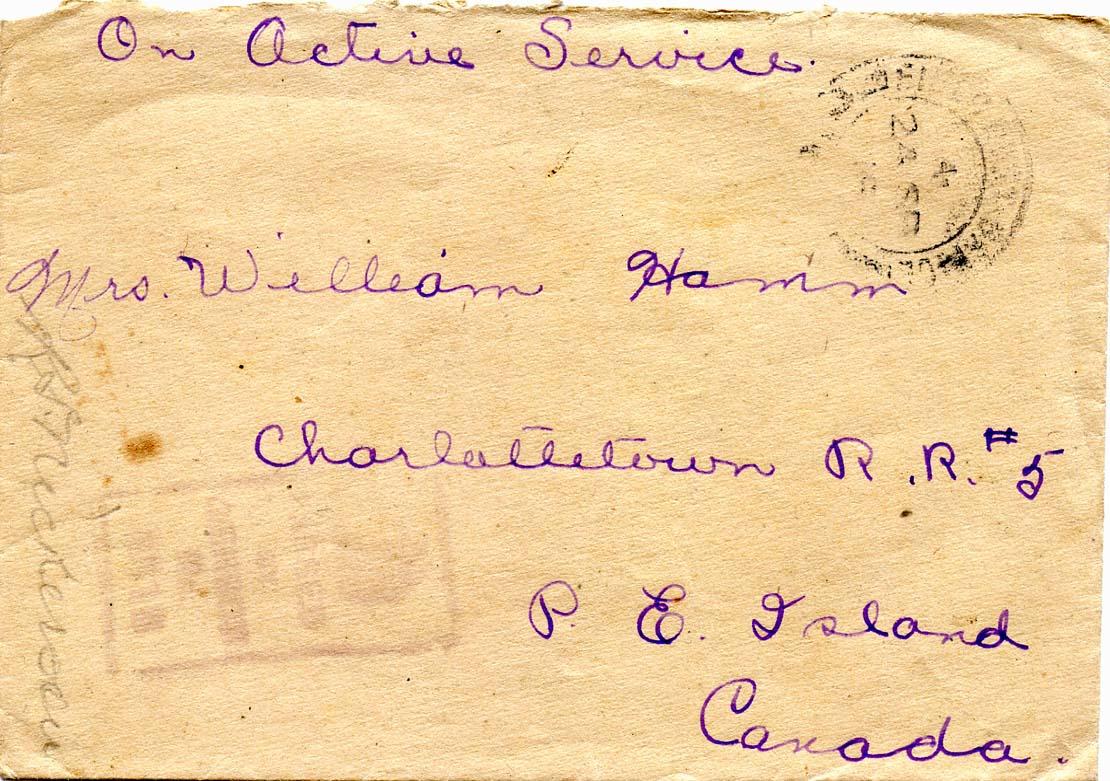 On Active Service.
Mrs. William Hamm
Charlottetown R.R. #5
P. E. Island
Canada.